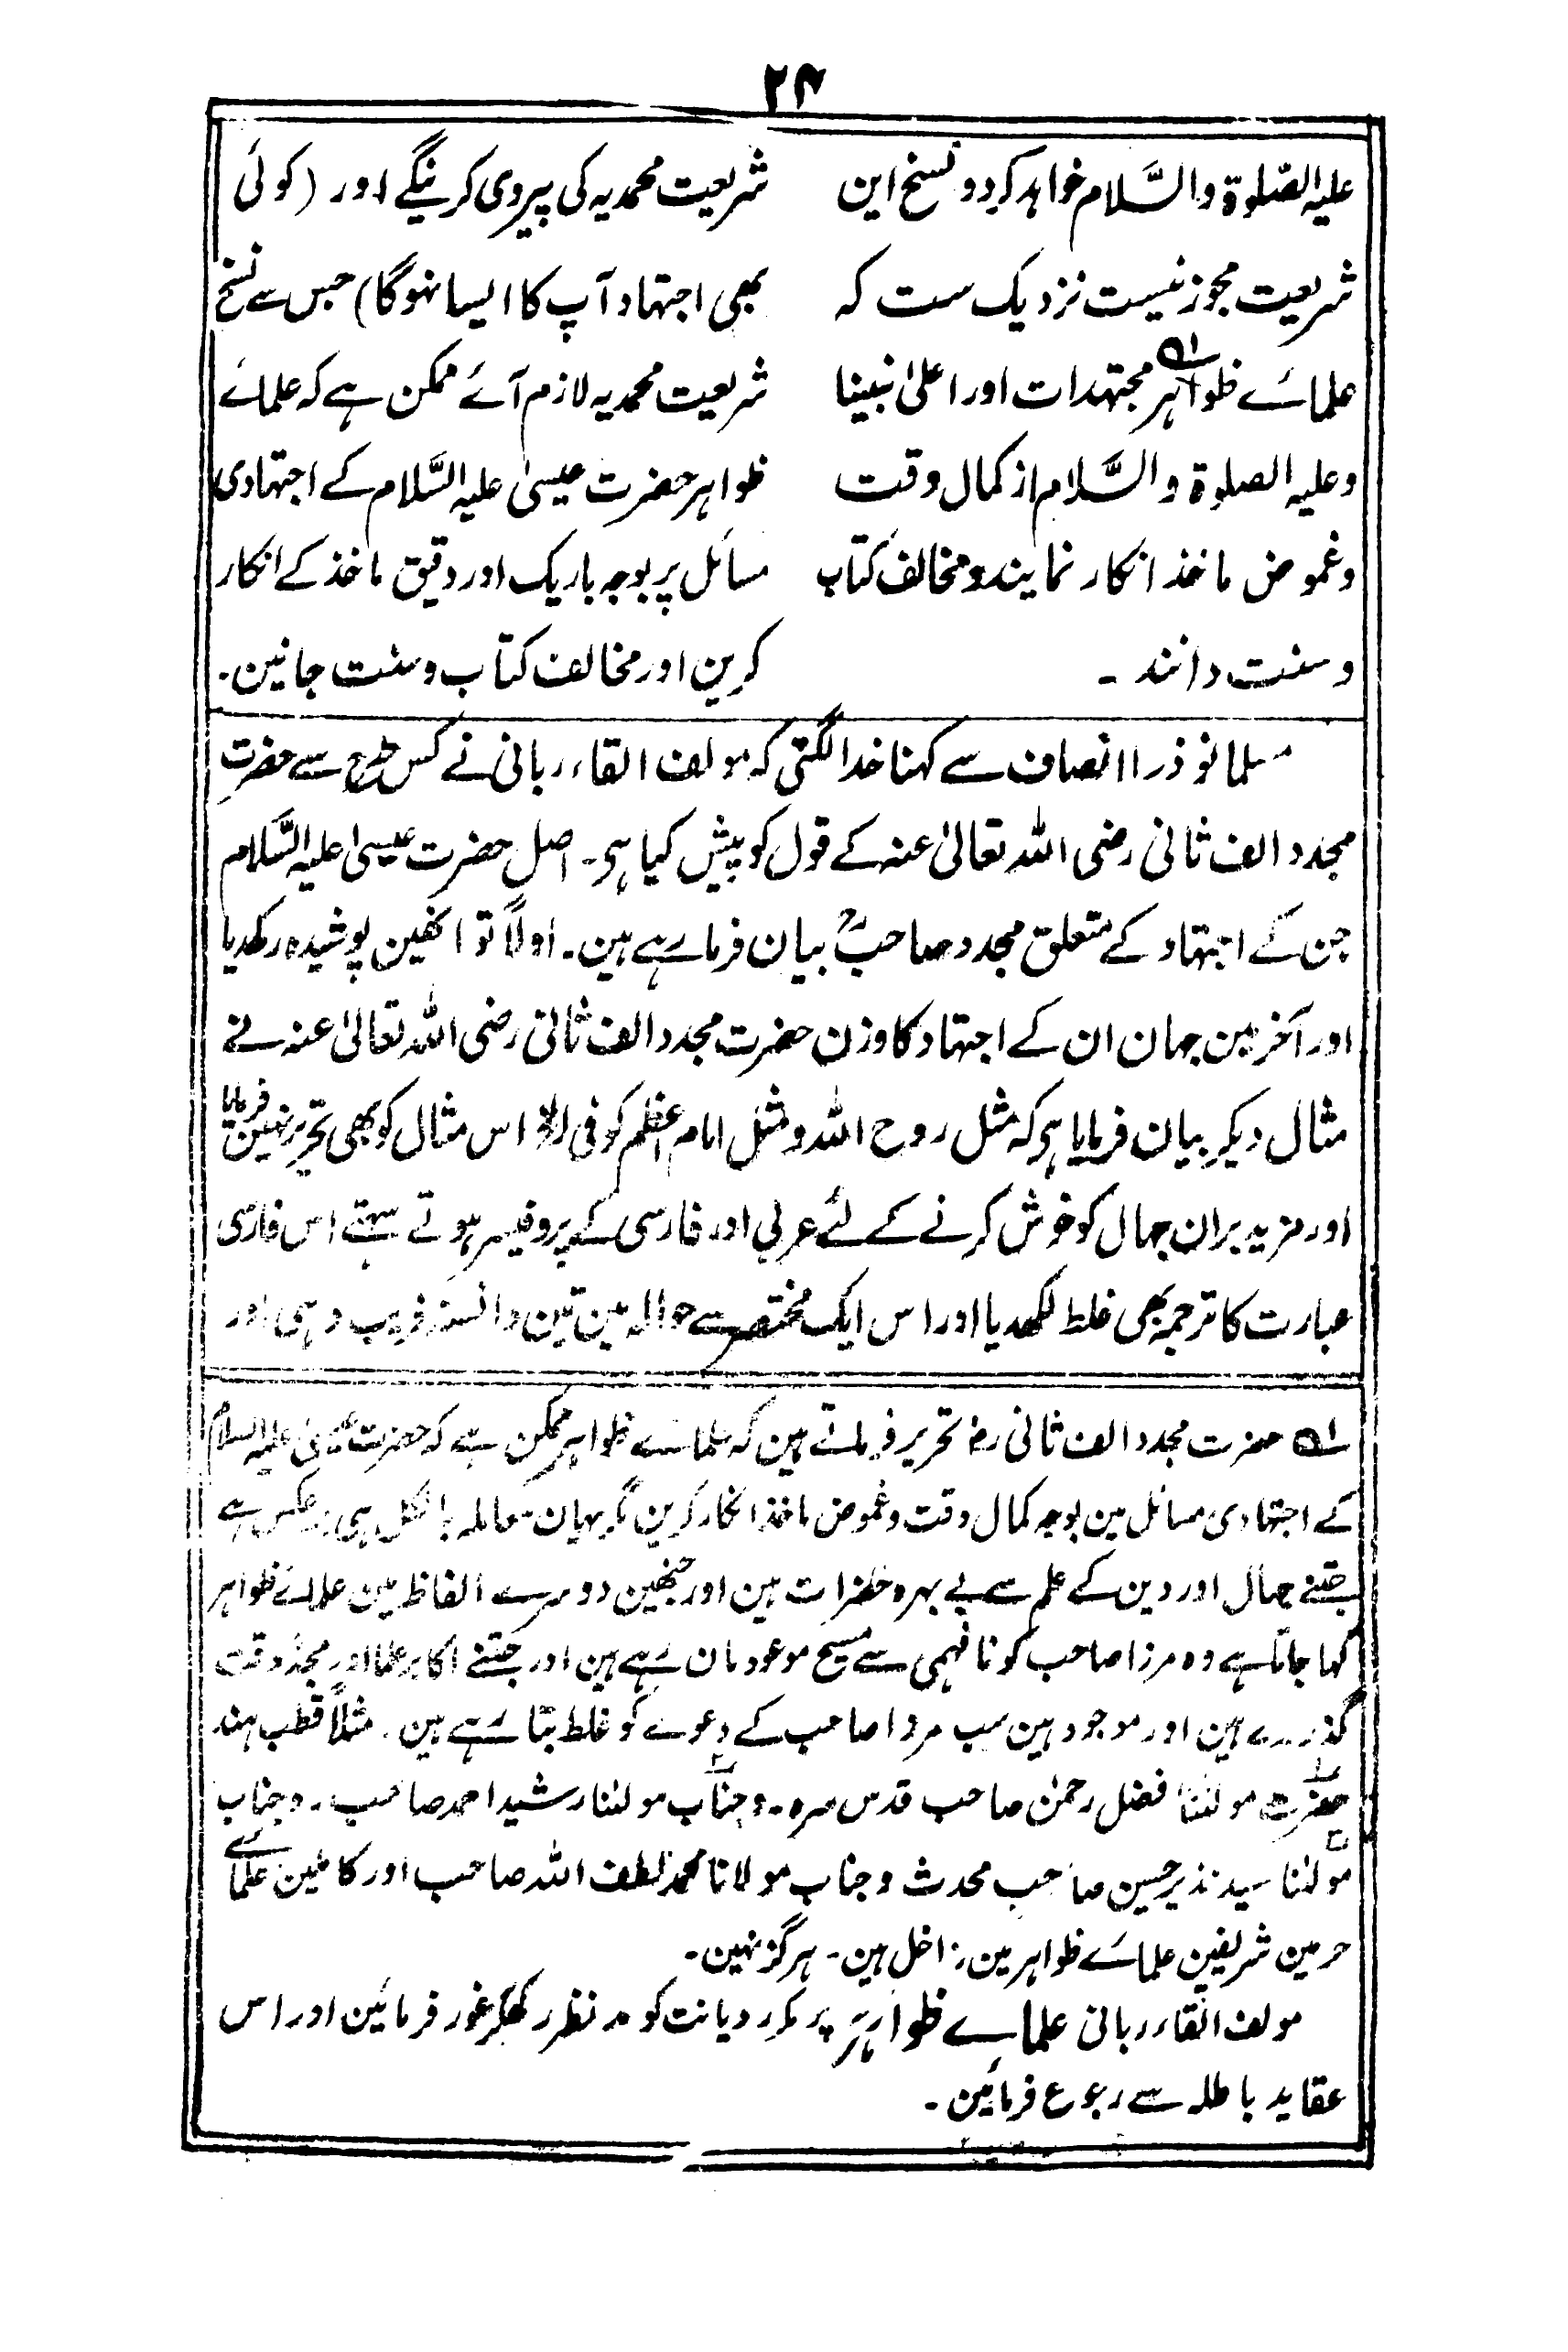 ۲۴
علیہ الصّلوۃ والسَّلام خواہد کرد و نسخ این
شریعت مجوز نیست نزدیک ست کہ
علمائے ظواہر مجتہدات اور اعلیٰ نبینا
وعلیہ الصلوۃ والسَّلام از کمال وقت
وغموض ماخذ انکار نمایند و مخالف کتاب
وسنت دانند ۔
شریعت محمدیہ کی پیروی کرینگے اور (کوئی
بھی اجتہاد آپ کا ایسا نہوگا) جس سے نسخ
شریعت محمدیہ لازم آئے ممکن ہے کہ علمائے
ظواہر حضرت عیسیٰ علیہ السَّلام کے اجتہادی
مسائل پر بوجہ باریک اور دقیق ماخذ کے انکار
کرین اور مخالف کتاب وسنت جانین۔
مسلمانو ذرا انصاف سے کہنا خدا لگتی کہ مولف القاء ربانی نے کس طرح سے حضرت
مجدد الف ثانی رضی اللہ تعالیٰ عنہ کے قول کو پیش کیا ہی۔ اصل حضرت عیسیٰ علیہ السَّلام
جن کے اجتہاد کے متعلق مجدد صاحبؒ بیان فرما رہے ہین۔ اولاً تو انھین پوشیدہ رکھدیا
اور آخر مین جہان ان کے اجتہاد کا وزن حضرت مجدد الف ثانی رضی اللہ تعالیٰ عنہ نے
مثال دیکر بیان فرمایا ہی کہ مثل روح اللہ و مثل امام اعظم کوفی الاٰ اس مثال کو بھی تحریر نہین فرمایا
اور مزید بران جہال کو خوش کرنے کے لئے عربی اور فارسی کے پروفیسر ہوتے سہتے اس فارسی
عبارت کا ترجمہ بھی غلط لکھدیا اور اس ایک مختصر سے حوالہ مین تین دانستہ فریب دہی اور
لہ حضرت مجدد الف ثانی رضؓ تحریر فرماتے ہین کہ علمائے ظواہر ممکن ہے کہ حضرت عیسیٰ علیہ السلام
کے اجتہادی مسائل مین بوجہ کمال دقت وغموض ماخذ انکار کرین مگر یہان معاملہ بالکل ہی برعکس ہے
جتنے جہال اور دین کے علم سے بے بہرہ حضرات ہین اور جنھین دوسرے الفاظ مین علمائے ظواہر
کہا جاتا ہے وہ مرزا صاحب کو نافہمی سے مسیح موعود مان رہے ہین اور جتنے اکابر علما اور مجدد وقت
گذرے ہین اور موجود ہین سب مرزا صاحب کے دعوے کو غلط بتا رہے ہین۔ مثلاً قطب ہند
حضرت مولٰنا فضل رحمٰن صاحب قدس سرہ ۔ وجناب مولٰنا رشید احمد صاحب ۔ وجناب
مولٰنا سید نذیر حسین صاحب محدث وجناب مولانا محمد لطف اللہ صاحب اور کاملین علمائے
حرمین شریفین علمائے ظواہر مین داخل ہین۔ ہرگز نہین۔
مولف القاء ربانی علماے ظواہر پر مکرر دیانت کو مدنظر رکھکر غور فرمائین اور اس
عقاید باطلہ سے رجوع فرمائین۔